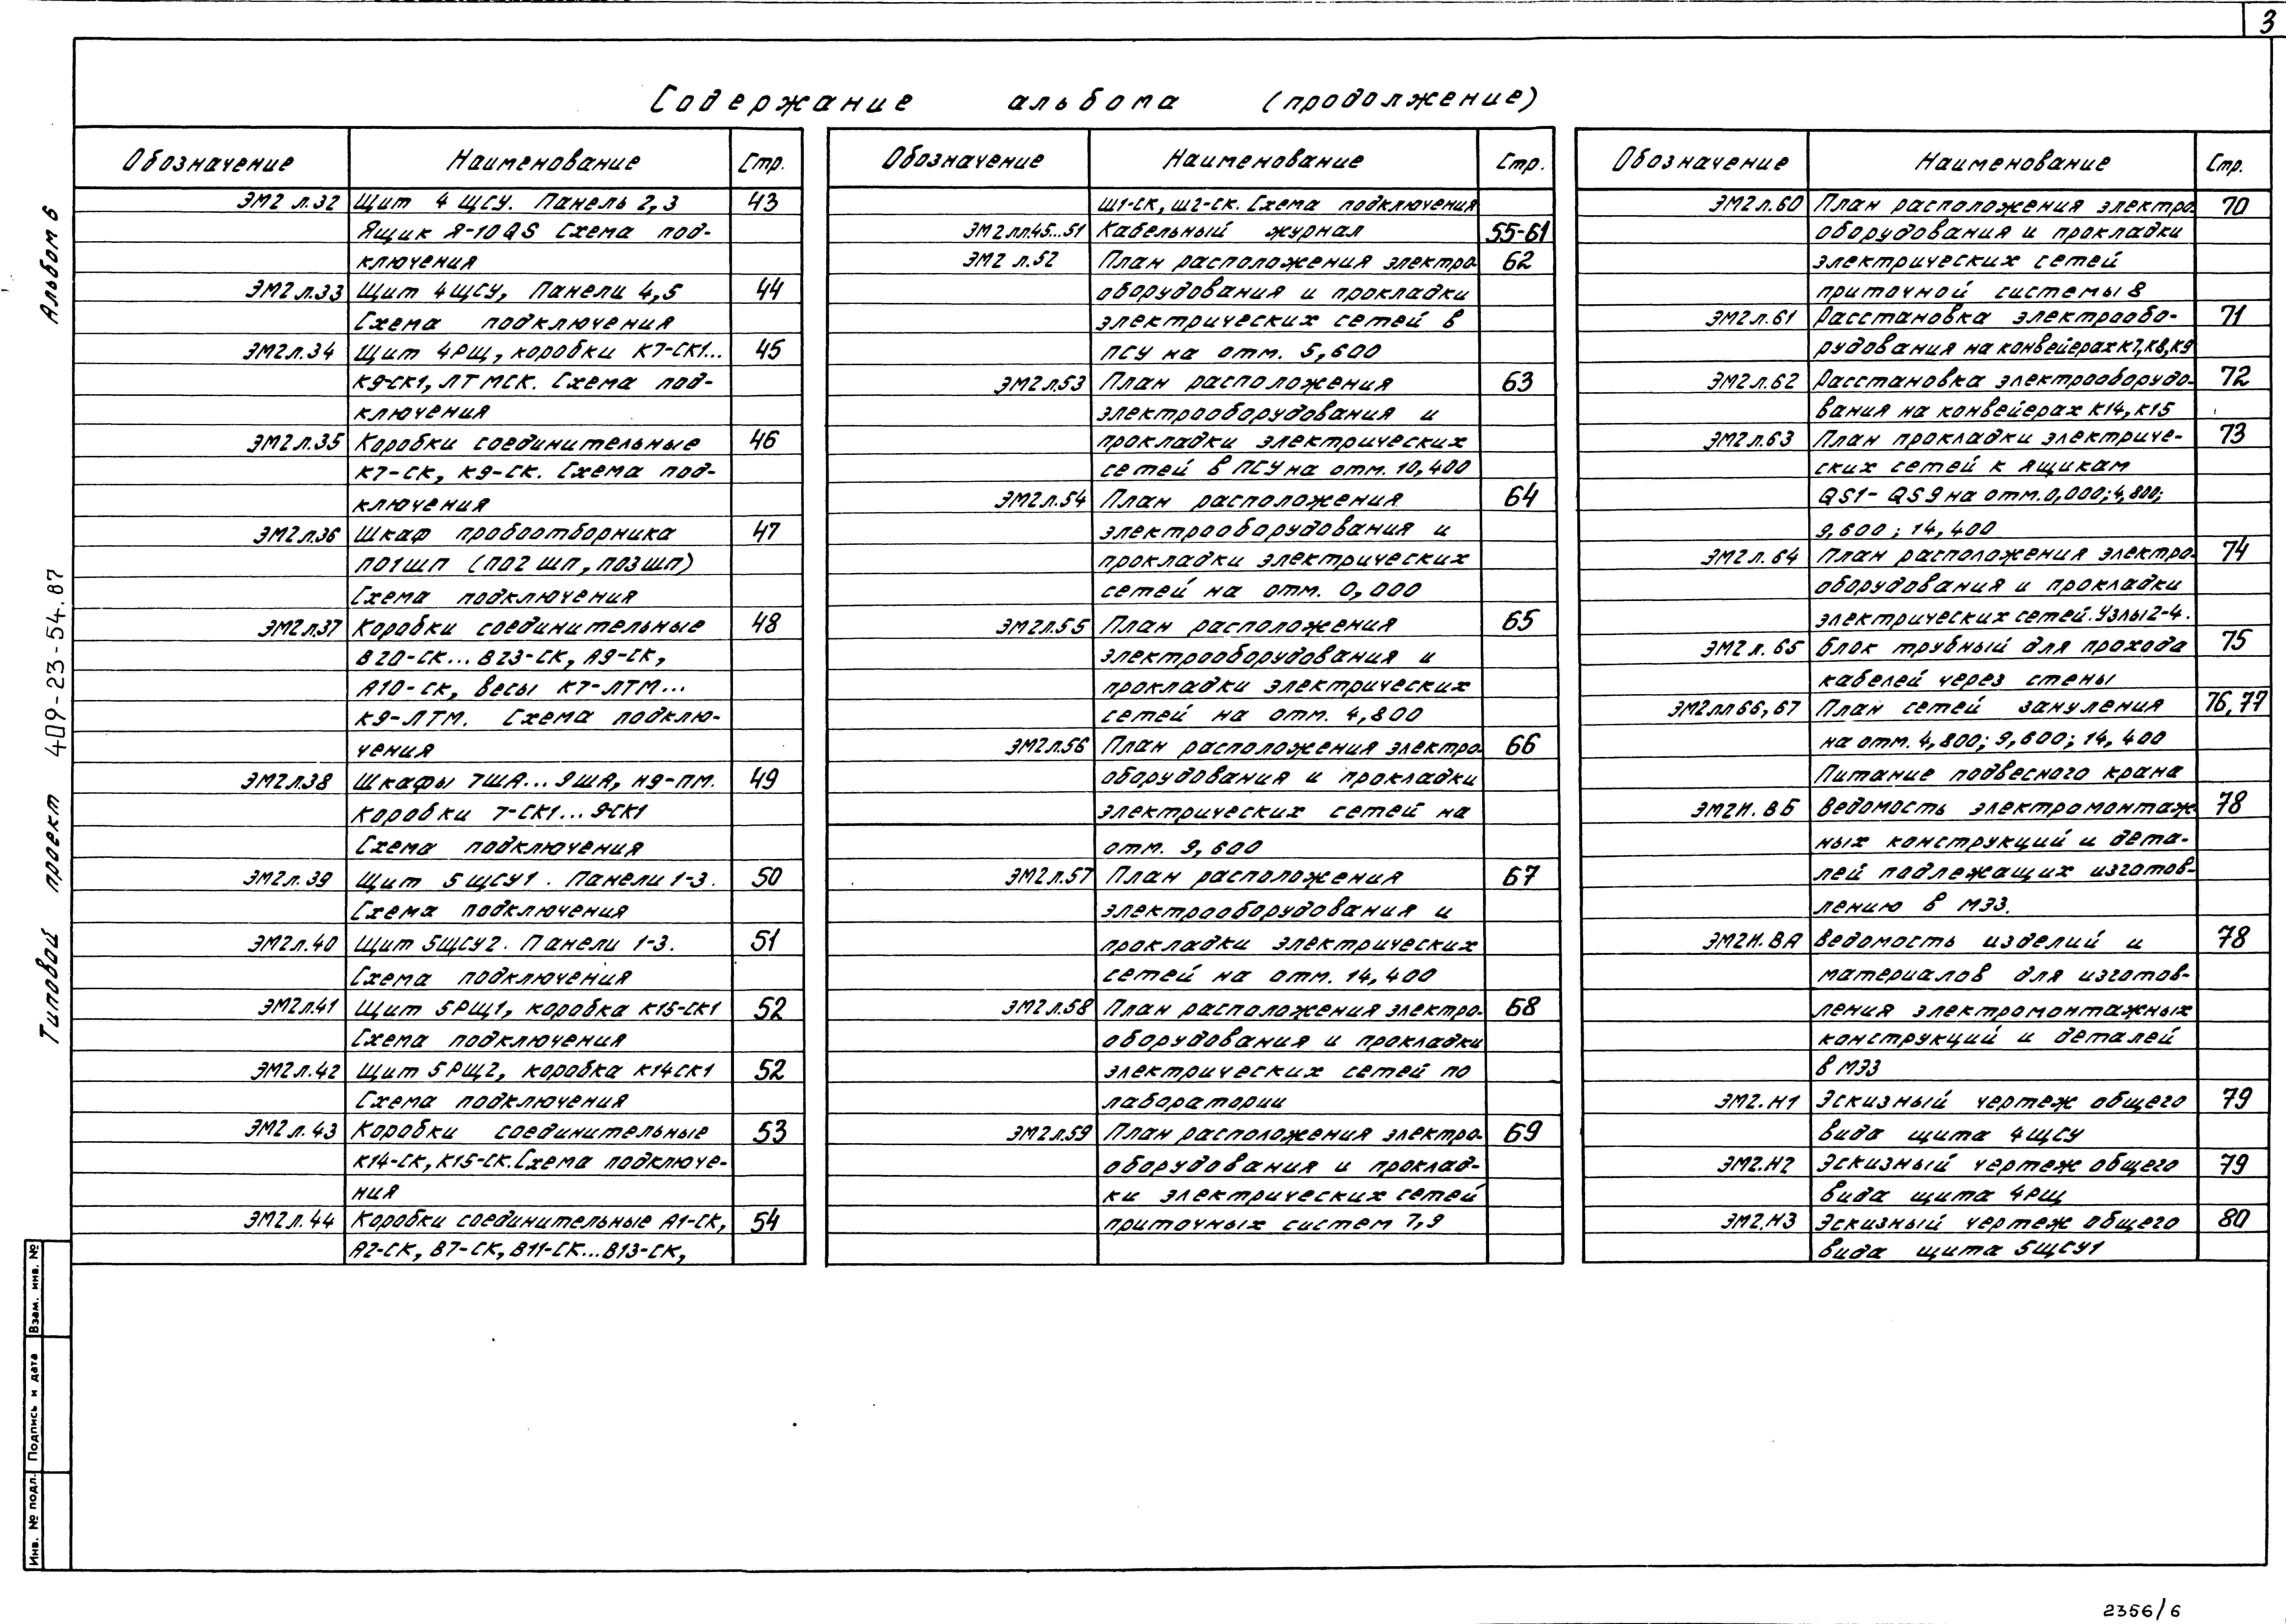 3
Содержание альбома (продолжение)
Обозначение Наименование Стр.
ЭМ2 л.32 Щит 4 ЩСУ. Панель 2,3 43
Ящик Я-10QS Схема под-
ключения
ЭМ2 л.33 Щит 4ЩСУ, Панели 4,5 44
Схема подключения
ЭМ2 л.34 Щит 4РЩ, коробки К7-СК1... 45
К9-СК1, ЛТМСК. Схема под-
ключения
ЭМ2 л.35 Коробки соединительные 46
К7-СК, К9-СК. Схема под-
ключения
ЭМ2 л.36 Шкаф пробоотборника 47
ПО1ШП (ПО2 ШП, ПО3ШП)
Схема подключения
ЭМ2 л.37 Коробки соединительные 48
В20-СК... В23-СК, А9-СК,
А10-СК, весы К7-ЛТМ...
К9-ЛТМ. Схема подклю-
чения
ЭМ2 л.38 Шкафы 7ША... 9ША, Н9-ПМ. 49
коробки 7-СК1... 9-СК1
Схема подключения
ЭМ2 л.39 Щит 5 ЩСУ1. Панели 1-3. 50
Схема подключения
ЭМ2 л.40 Щит 5ЩСУ2. Панели 1-3. 51
Схема подключения
ЭМ2 л.41 Щит 5РЩ1, коробка К15-СК1 52
Схема подключения
ЭМ2 л.42 Щит 5РЩ2, коробка К14СК1 52
Схема подключения
ЭМ2 л.43 Коробки соединительные 53
К14-СК, К15-СК. Схема подключе-
ния
ЭМ2 л.44 Коробки соединительные А1-СК, 54
А2-СК, В7-СК, В11-СК... В13-СК,
Обозначение Наименование Стр.
Ш1-СК, Ш2-СК. Схема подключения
ЭМ2 лл.45...51 Кабельный журнал 55-61
ЭМ2 л.52 План расположения электро- 62
оборудования и прокладки
электрических сетей в
ПСУ на отм. 5,600
ЭМ2 л.53 План расположения 63
электрооборудования и
прокладки электрических
сетей в ПСУ на отм. 10,400
ЭМ2 л.54 План расположения 64
электрооборудования и
прокладки электрических
сетей на отм. 0,000
ЭМ2 л.55 План расположения 65
электрооборудования и
прокладки электрических
сетей на отм. 4,800
ЭМ2 л.56 План расположения электро- 66
оборудования и прокладки
электрических сетей на
отм. 9,600
ЭМ2 л.57 План расположения 67
электрооборудования и
прокладки электрических
сетей на отм. 14,400
ЭМ2 л.58 План расположения электро- 68
оборудования и прокладки
электрических сетей по
лаборатории
ЭМ2 л.59 План расположения электро- 69
оборудования и проклад-
ки электрических сетей
приточных систем 7,9
Обозначение Наименование Стр.
ЭМ2 л.60 План расположения электро- 70
оборудования и прокладки
электрических сетей
приточной системы 8
ЭМ2 л.61 Расстановка электрообо- 71
рудования на конвейерах К7, К8, К9
ЭМ2 л.62 Расстановка электрооборудо- 72
вания на конвейерах К14, К15
ЭМ2 л.63 План прокладки электриче- 73
ских сетей к ящикам
QS1- QS9 на отм. 0,000; 4,800;
9,600; 14,400
ЭМ2 л.64 План расположения электро- 74
оборудования и прокладки
электрических сетей. Узлы 2-4.
ЭМ2 л.65 Блок трубный для прохода 75
кабелей через стены
ЭМ2 лл 66, 67 План сетей зануления 76, 77
на отм. 4,800; 9,600; 14,400
Питание подвесного крана
ЭМ2И. ВБ Ведомость электромонтаж- 78
ных конструкций и дета-
лей подлежащих изготов-
лению в МЭЗ.
ЭМ2И. ВА Ведомость изделий и 78
материалов для изготов-
ления электромонтажных
конструкций и деталей
в МЭЗ
ЭМ2.Н1 Эскизный чертеж общего 79
вида щита 4ЩСУ
ЭМ2.Н2 Эскизный чертеж общего 79
вида щита 4РЩ
ЭМ2.Н3 Эскизный чертеж общего 80
вида щита 5ЩСУ1
Типовой проект 409-23-54.87 Альбом 6
Инв. № подл. Подпись и дата Взам. инв. №
2356/6